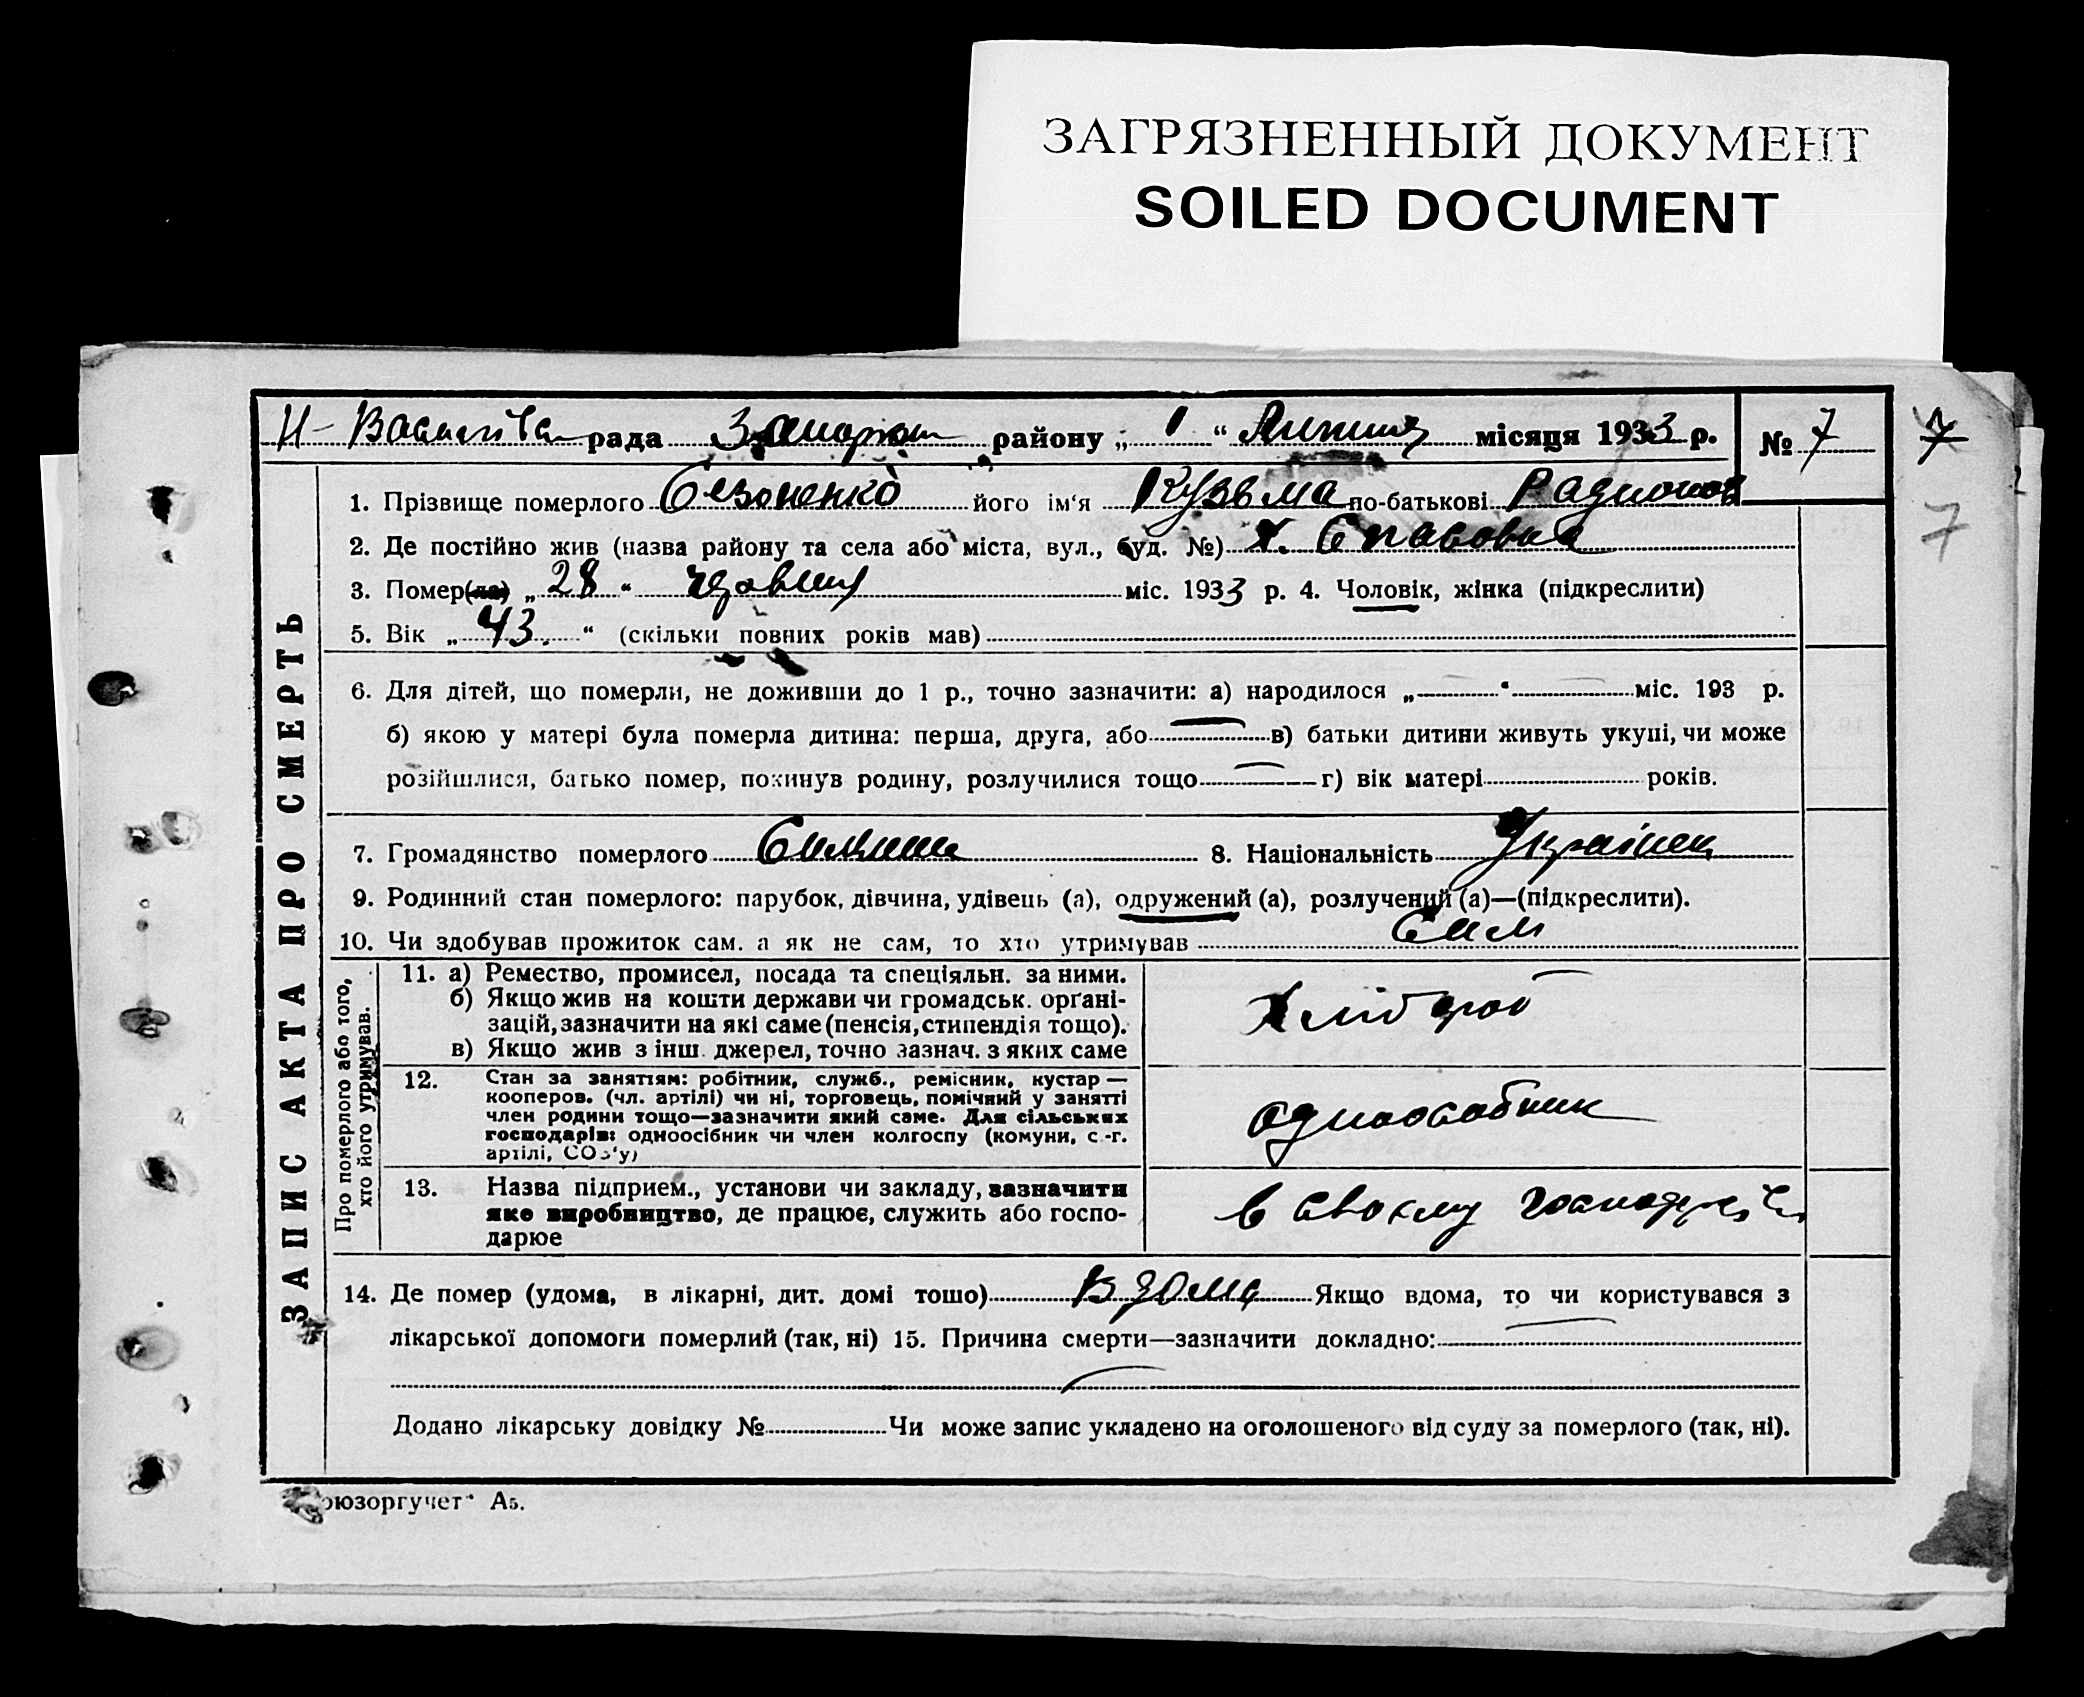 ЗАГРЯЗНЕННЫЙ ДОКУМЕНТ
SOILED DOCUMENT
рада район​у „ 1 “ місяця 1933 р. № 7 7
7
1. Прізвище померлого його ім‘я Кузьма по-батькові
2. Де постійно жив (назва району та села або міста, вул., буд. №) х.
3. Помер(ла) „ 28 “ червня міс. 1933 р. 4. Чоловік, жінка (підкреслити)
5. Вік „ 43. “ (скільки повних років мав)
6. Для дітей, що померли, не доживши до 1 р., точно зазначити: а) народилося „ “ міс. 193 р.
б) якою у матері була померла дитина: перша, друга, або в) батьки дитини живуть укупі, чи може
розійшлися, батько помер, покинув родину, розлучилися тощо г) вік матері років.
7. Громадянство померлого 8. Національність Українец
9. Родинний стан померлого: парубок, дівчина, удівець (а), одружений (а), розлучений (а)—(підкреслити).
10. Чи здобував прожиток сам. а як не сам, то хто утримував Сам
ЗАПИС АКТА ПРО СМЕРТЬ
Про померлого або того,
хто його утримував.
11. а) Ремество, промисел, посада та спеціяльн. за ними.
б) Якщо жив на кошти держави чи громадськ. орґані-
зацій, зазначити на які саме (пенсія, стипендія тощо).
в) Якщо жив з інш. джерел, точно зазнач. з яких саме
Хлібороб
12. Стан за заняттям: робітник, служб., ремісник, кустар —
кооперов. (чл. артілі) чи ні, торговець, помічний у занятті
член родини тощо—зазначити який саме. Для сільських
господарів: одноосібник чи член колгоспу (комуни, с.-г.
артілі, СОЗ'у)
одноосабник
13. Назва підприєм., установи чи закладу, зазначити
яке виробництво, де працює, служить або госпо-
дарює
в своему
14. Де помер (удома, в лікарні, дит. домі тошо) Вдома Якщо вдома, то чи користувався з
лікарської допомоги померлий (так, ні) 15. Причина смерти—зазначити докладно:
Додано лікарську довідку № Чи може запис укладено на оголошеного від суду за померлого (так, ні).
оюзоргучет“ А5.